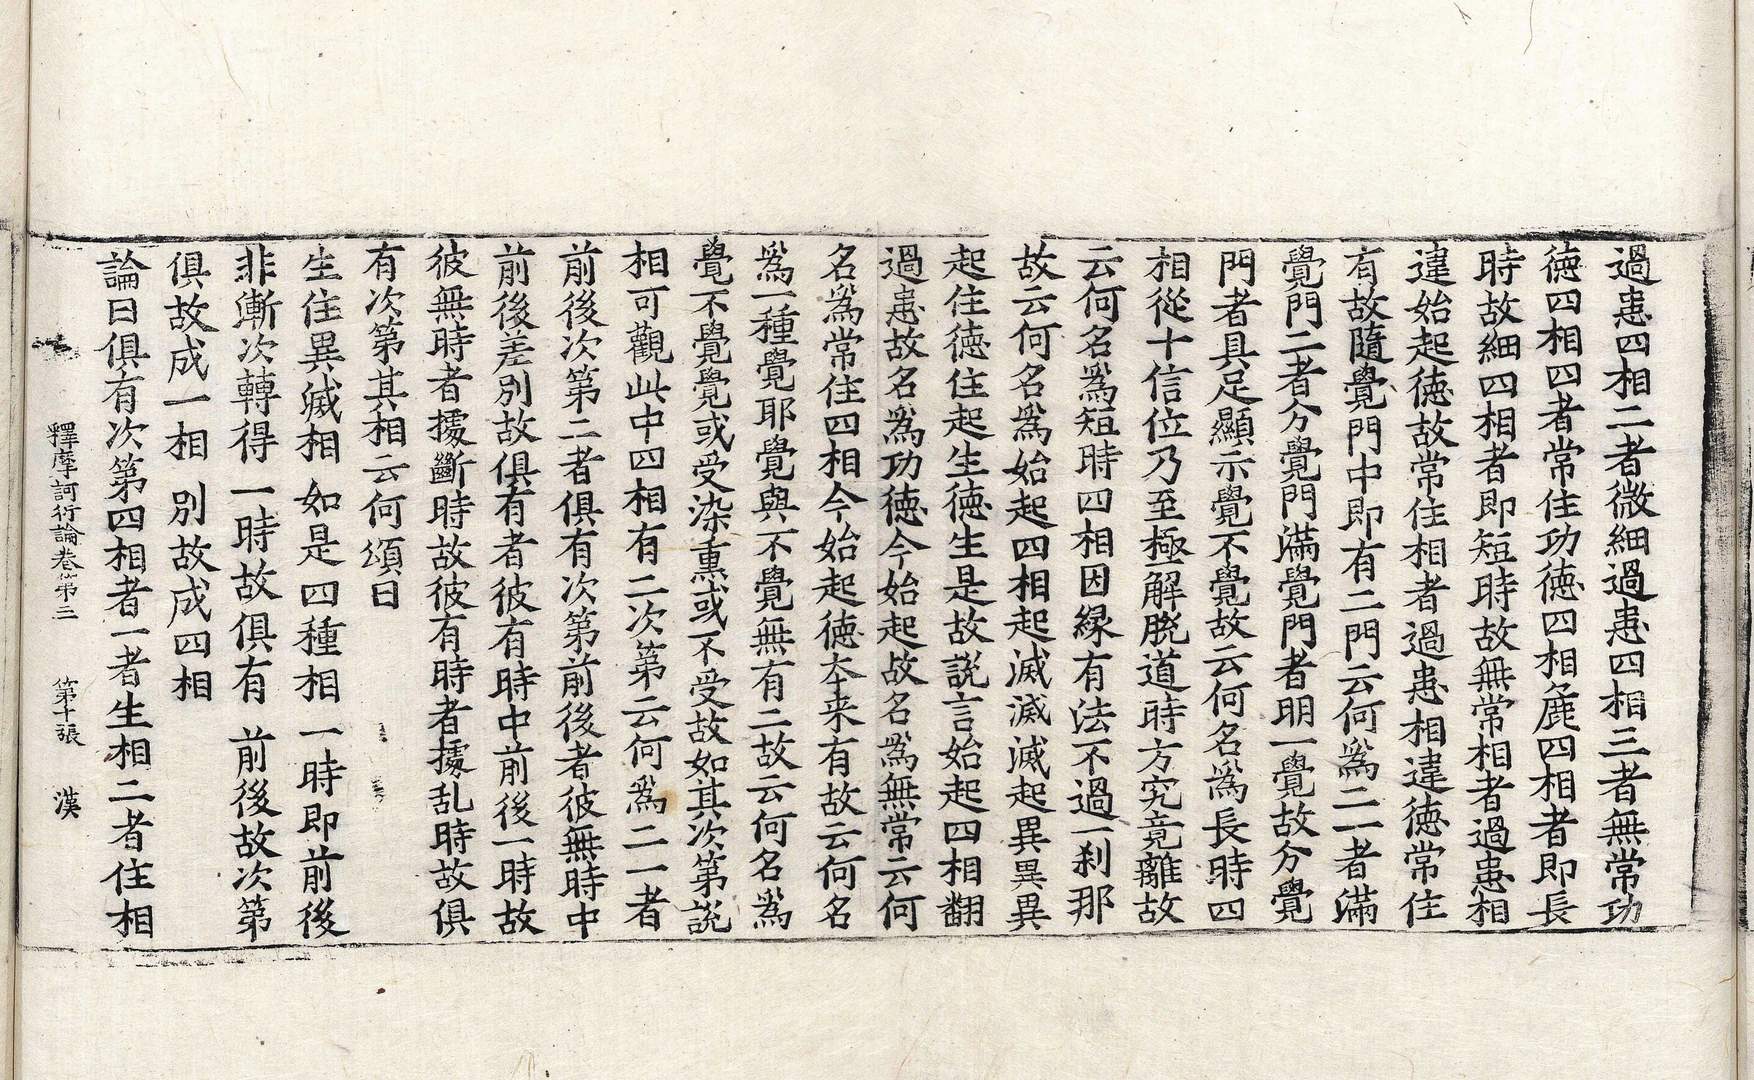 過患四相二者微細過患四相三者無常功
德四相四者常住功德四相麁四相者即長
時故細四相者即短時故無常相者過患相
違始起德故常住相者過患相違德常住
有故隨覺門中即有二門云何爲二一者滿
覺門二者分覺門滿覺門者明一覺故分覺
門者具足顯示覺不覺故云何名爲長時四
相從十信位乃至極解脫道時方究竟離故
云何名爲短時四相因緣有法不過一刹那
故云何名爲始起四相起滅滅滅起異異異
起住德住起生德生是故說言始起四相翻
過患故名爲功德今始起故名爲無常云何
名爲常住四相今始起德本来有故云何名
爲一種覺耶覺與不覺無有二故云何名爲
覺不覺覺或受染熏或不受故如其次第說
相可觀此中四相有二次第云何爲二一者
前後次第二者俱有次第前後者彼無時中
前後差別故俱有者彼有時中前後一時故
彼無時者據斷時故彼有時者據乱時故俱
有次第其相云何頌曰
生住異滅相 如是四種相 一時即前後
非漸次轉得 一時故俱有 前後故次第
俱故成一相 別故成四相
論曰俱有次第四相者一者生相二者住相
釋摩訶衍論卷第三 第十張 漢